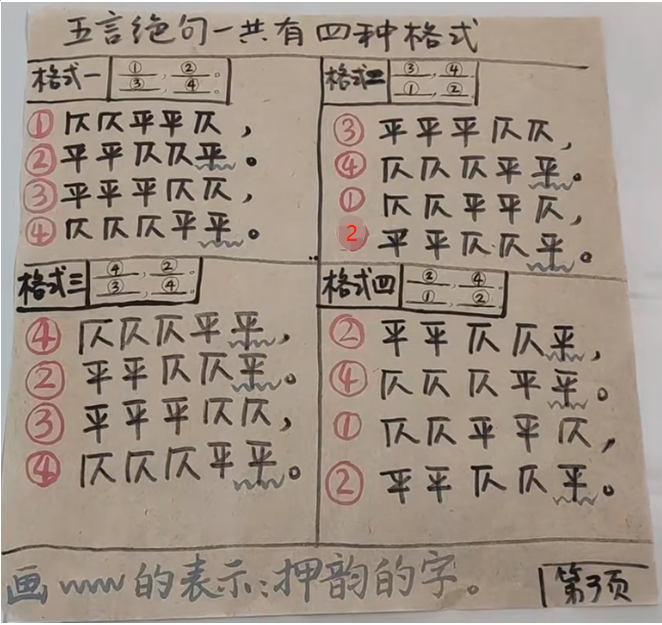 五言绝句一共有四种格式
格式一 ①,②。
③,④。
①仄仄平平仄,
②平平仄仄平。
③平平平仄仄,
④仄仄仄平平。
格式二 ③,④。
①,②。
③平平平仄仄,
④仄仄仄平平。
①仄仄平平仄,
2平平仄仄平。
格式三 ④,②。
③,④。
④仄仄仄平平,
②平平仄仄平。
③平平平仄仄,
④仄仄仄平平。
格式四 ②,④。
①,②。
②平平仄仄平,
④仄仄仄平平。
①仄仄平平仄,
②平平仄仄平。
画﹏﹏的表示:押韵的字。
第3页